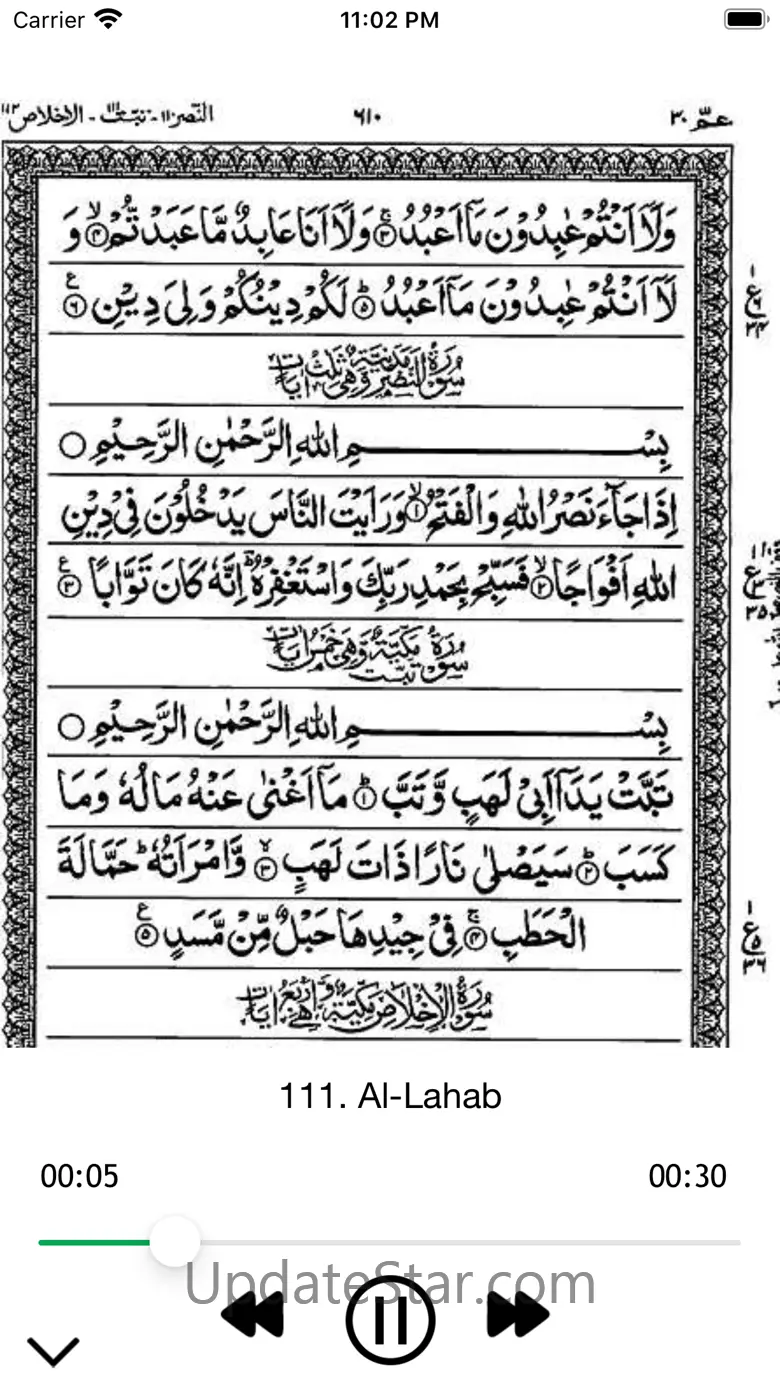 Carrier 11:02 PM
عمّ ٣٠ ٦١٠ النّصر ١١٠ - تبّت ١١١ - الاخلاص ١١٢
وَلَاۤ اَنْتُمْ عٰبِدُوْنَ مَاۤ اَعْبُدُ ۚ﴿۳﴾ وَلَاۤ اَنَا عَابِدٌ مَّا عَبَدْتُّمْ ۙ﴿۴﴾ وَ
لَاۤ اَنْتُمْ عٰبِدُوْنَ مَاۤ اَعْبُدُ ؕ﴿۵﴾ لَكُمْ دِيْنُكُمْ وَلِیَ دِيْنِ ﴿۶﴾ ع
سُوْرَةُ النَّصْرِ مَدَنِيَّةٌ وَّهِیَ ثَلٰثُ اٰيَاتٍ
بِسْمِ اللهِ الرَّحْمٰنِ الرَّحِيْمِ ○
اِذَا جَآءَ نَصْرُ اللهِ وَالْفَتْحُ ۙ﴿۱﴾ وَرَاَيْتَ النَّاسَ يَدْخُلُوْنَ فِیْ دِيْنِ
اللهِ اَفْوَاجًا ۙ﴿۲﴾ فَسَبِّحْ بِحَمْدِ رَبِّكَ وَاسْتَغْفِرْهُ ؕ اِنَّهٗ كَانَ تَوَّابًا ﴿۳﴾ ع
سُوْرَةُ تَبَّتْ مَكِّيَّةٌ وَّهِیَ خَمْسُ اٰيَاتٍ
بِسْمِ اللهِ الرَّحْمٰنِ الرَّحِيْمِ ○
تَبَّتْ يَدَاۤ اَبِیْ لَهَبٍ وَّتَبَّ ؕ﴿۱﴾ مَاۤ اَغْنٰی عَنْهُ مَالُهٗ وَمَا
كَسَبَ ؕ﴿۲﴾ سَيَصْلٰی نَارًا ذَاتَ لَهَبٍ ۚۖ﴿۳﴾ وَّامْرَاَتُهٗ ؕ حَمَّالَةَ
الْحَطَبِ ۚ﴿۴﴾ فِیْ جِيْدِهَا حَبْلٌ مِّنْ مَّسَدٍ ﴿۵﴾ ع
سُوْرَةُ الْاِخْلَاصِ مَكِّيَّةٌ وَّهِیَ اَرْبَعُ اٰيَاتٍ
111. Al-Lahab
00:05 00:30
UpdateStar.com